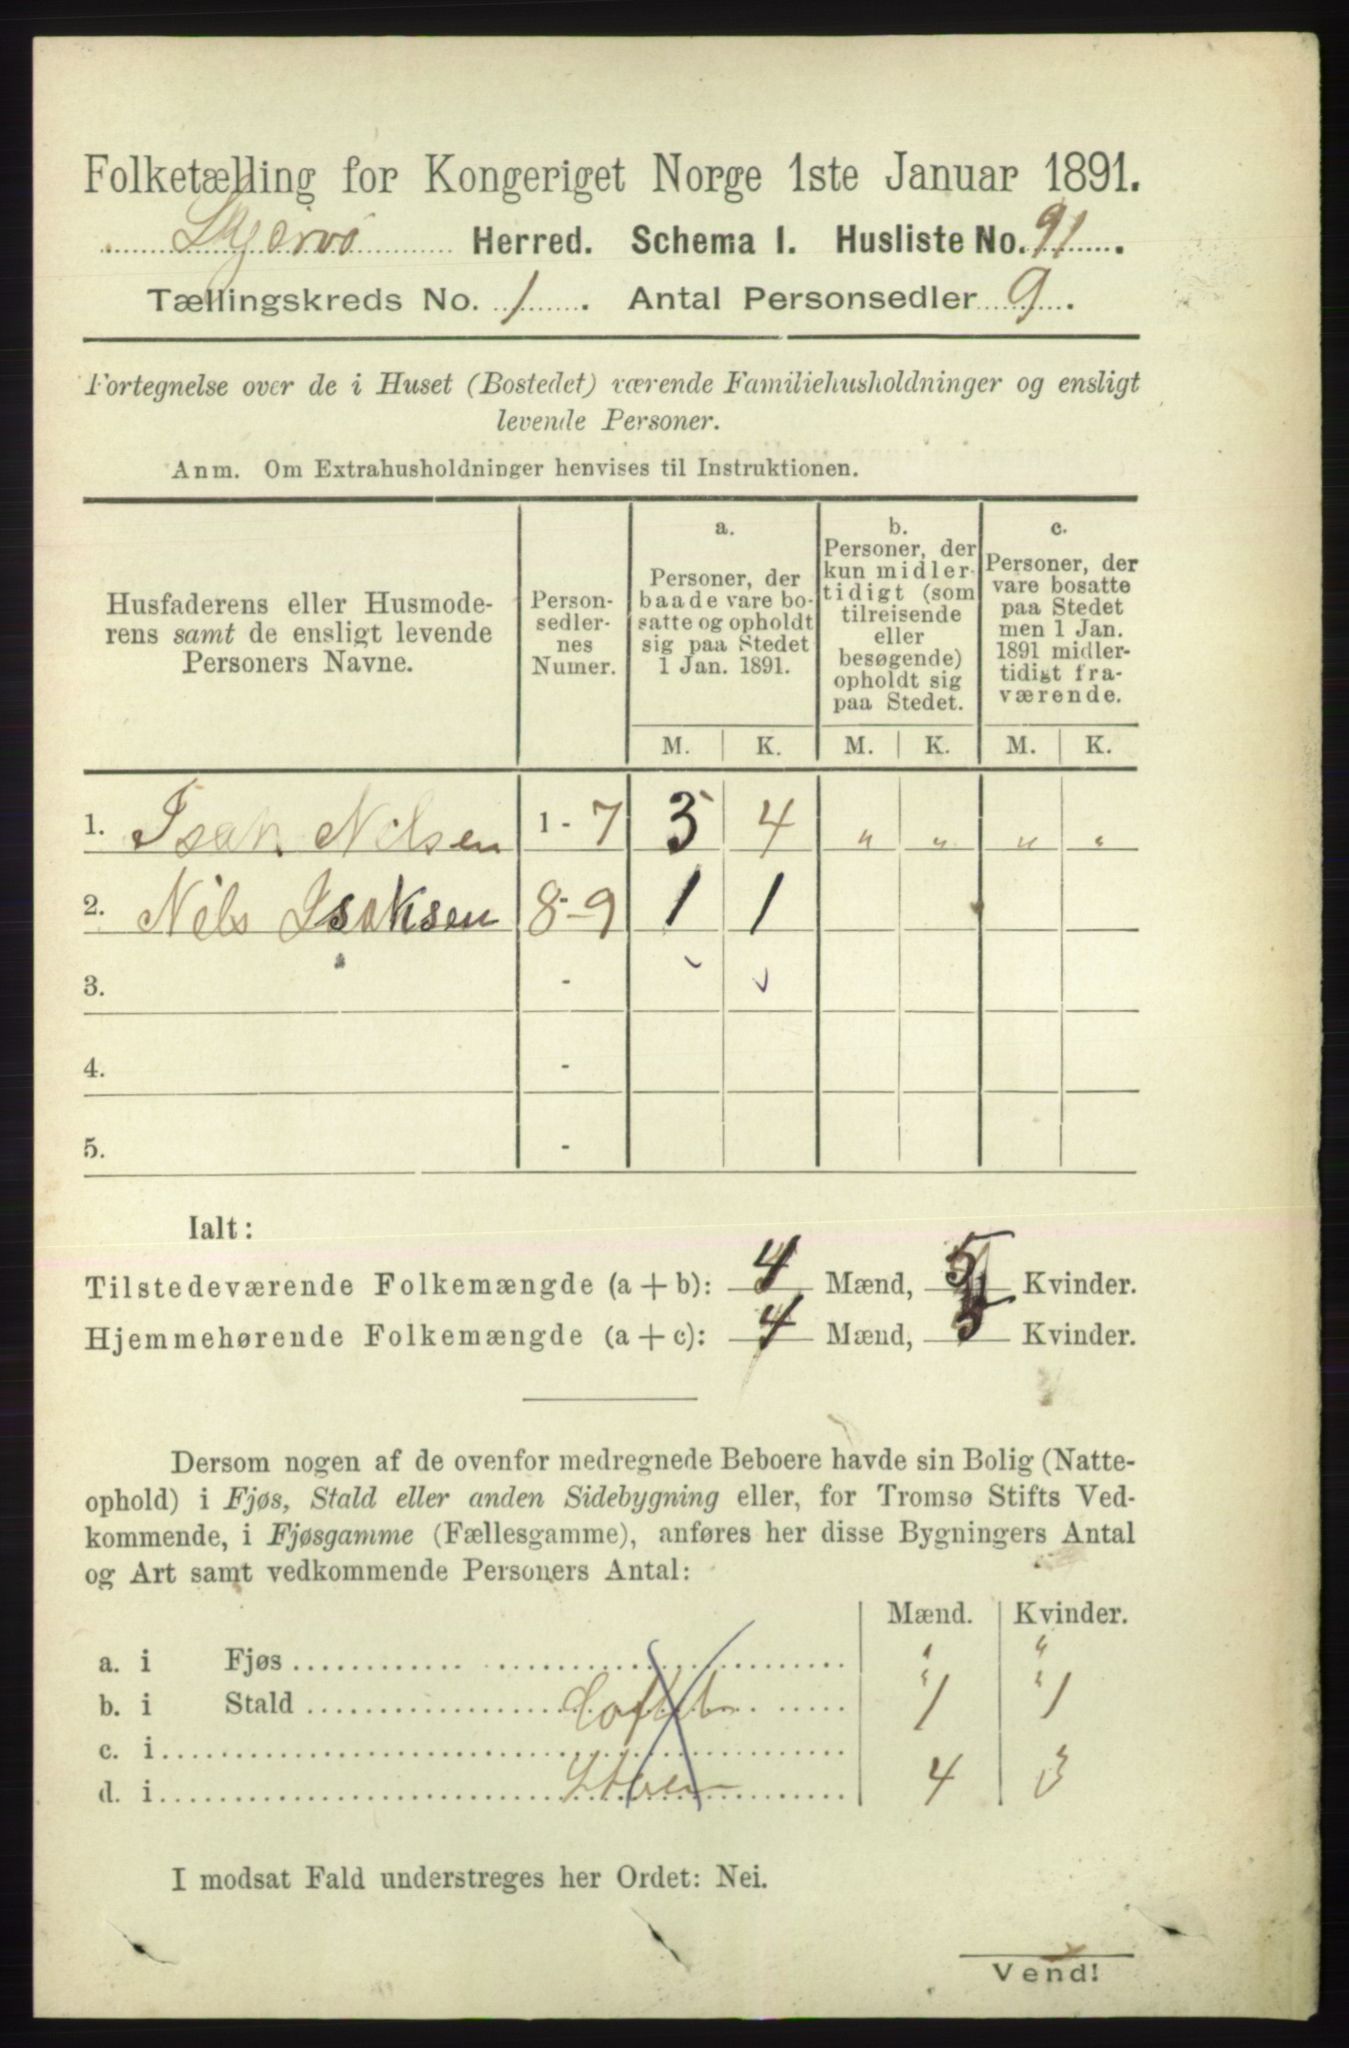 Folketælling for Kongeriget Norge 1ste Januar 1891.
Skjærvø Herred. Schema I. Husliste No. 91.
Tællingskreds No. 1. Antal Personsedler 9.
Fortegnelse over de i Huset (Bostedet) værende Familiehusholdninger og ensligt
levende Personer.
Anm. Om Extrahusholdninger henvises til Instruktionen.
Husfaderens eller Husmode-
rens samt de ensligt levende
Personers Navne.
Person-
sedler-
nes
Numer.
a.
Personer, der
baade vare bo-
satte og opholdt
sig paa Stedet
1 Jan. 1891.
b.
Personer, der
kun midler-
tidigt (som
tilreisende
eller
besøgende)
opholdt sig
paa Stedet.
c.
Personer, der
vare bosatte
paa Stedet
men 1 Jan.
1891 midler-
tidigt fra-
værende.
M. K. M. K. M. K.
1. Isak Nilsen 1 - 7 3 4 " " " "
2. Nils Isaksen 8 - 9 1 1
3. -
4. -
5. -
Ialt:
Tilstedeværende Folkemængde (a + b): 4 Mænd, 5 Kvinder.
Hjemmehørende Folkemængde (a + c): 4 Mænd, 5 Kvinder.
Dersom nogen af de ovenfor medregnede Beboere havde sin Bolig (Natte-
ophold) i Fjøs, Stald eller anden Sidebygning eller, for Tromsø Stifts Ved-
kommende, i Fjøsgamme (Fællesgamme), anføres her disse Bygningers Antal
og Art samt vedkommende Personers Antal:
Mænd. Kvinder.
a. i Fjøs " "
b. i Stald " 1 " 1
c. i
d. i 4 3
I modsat Fald understreges her Ordet: Nei.
Vend!